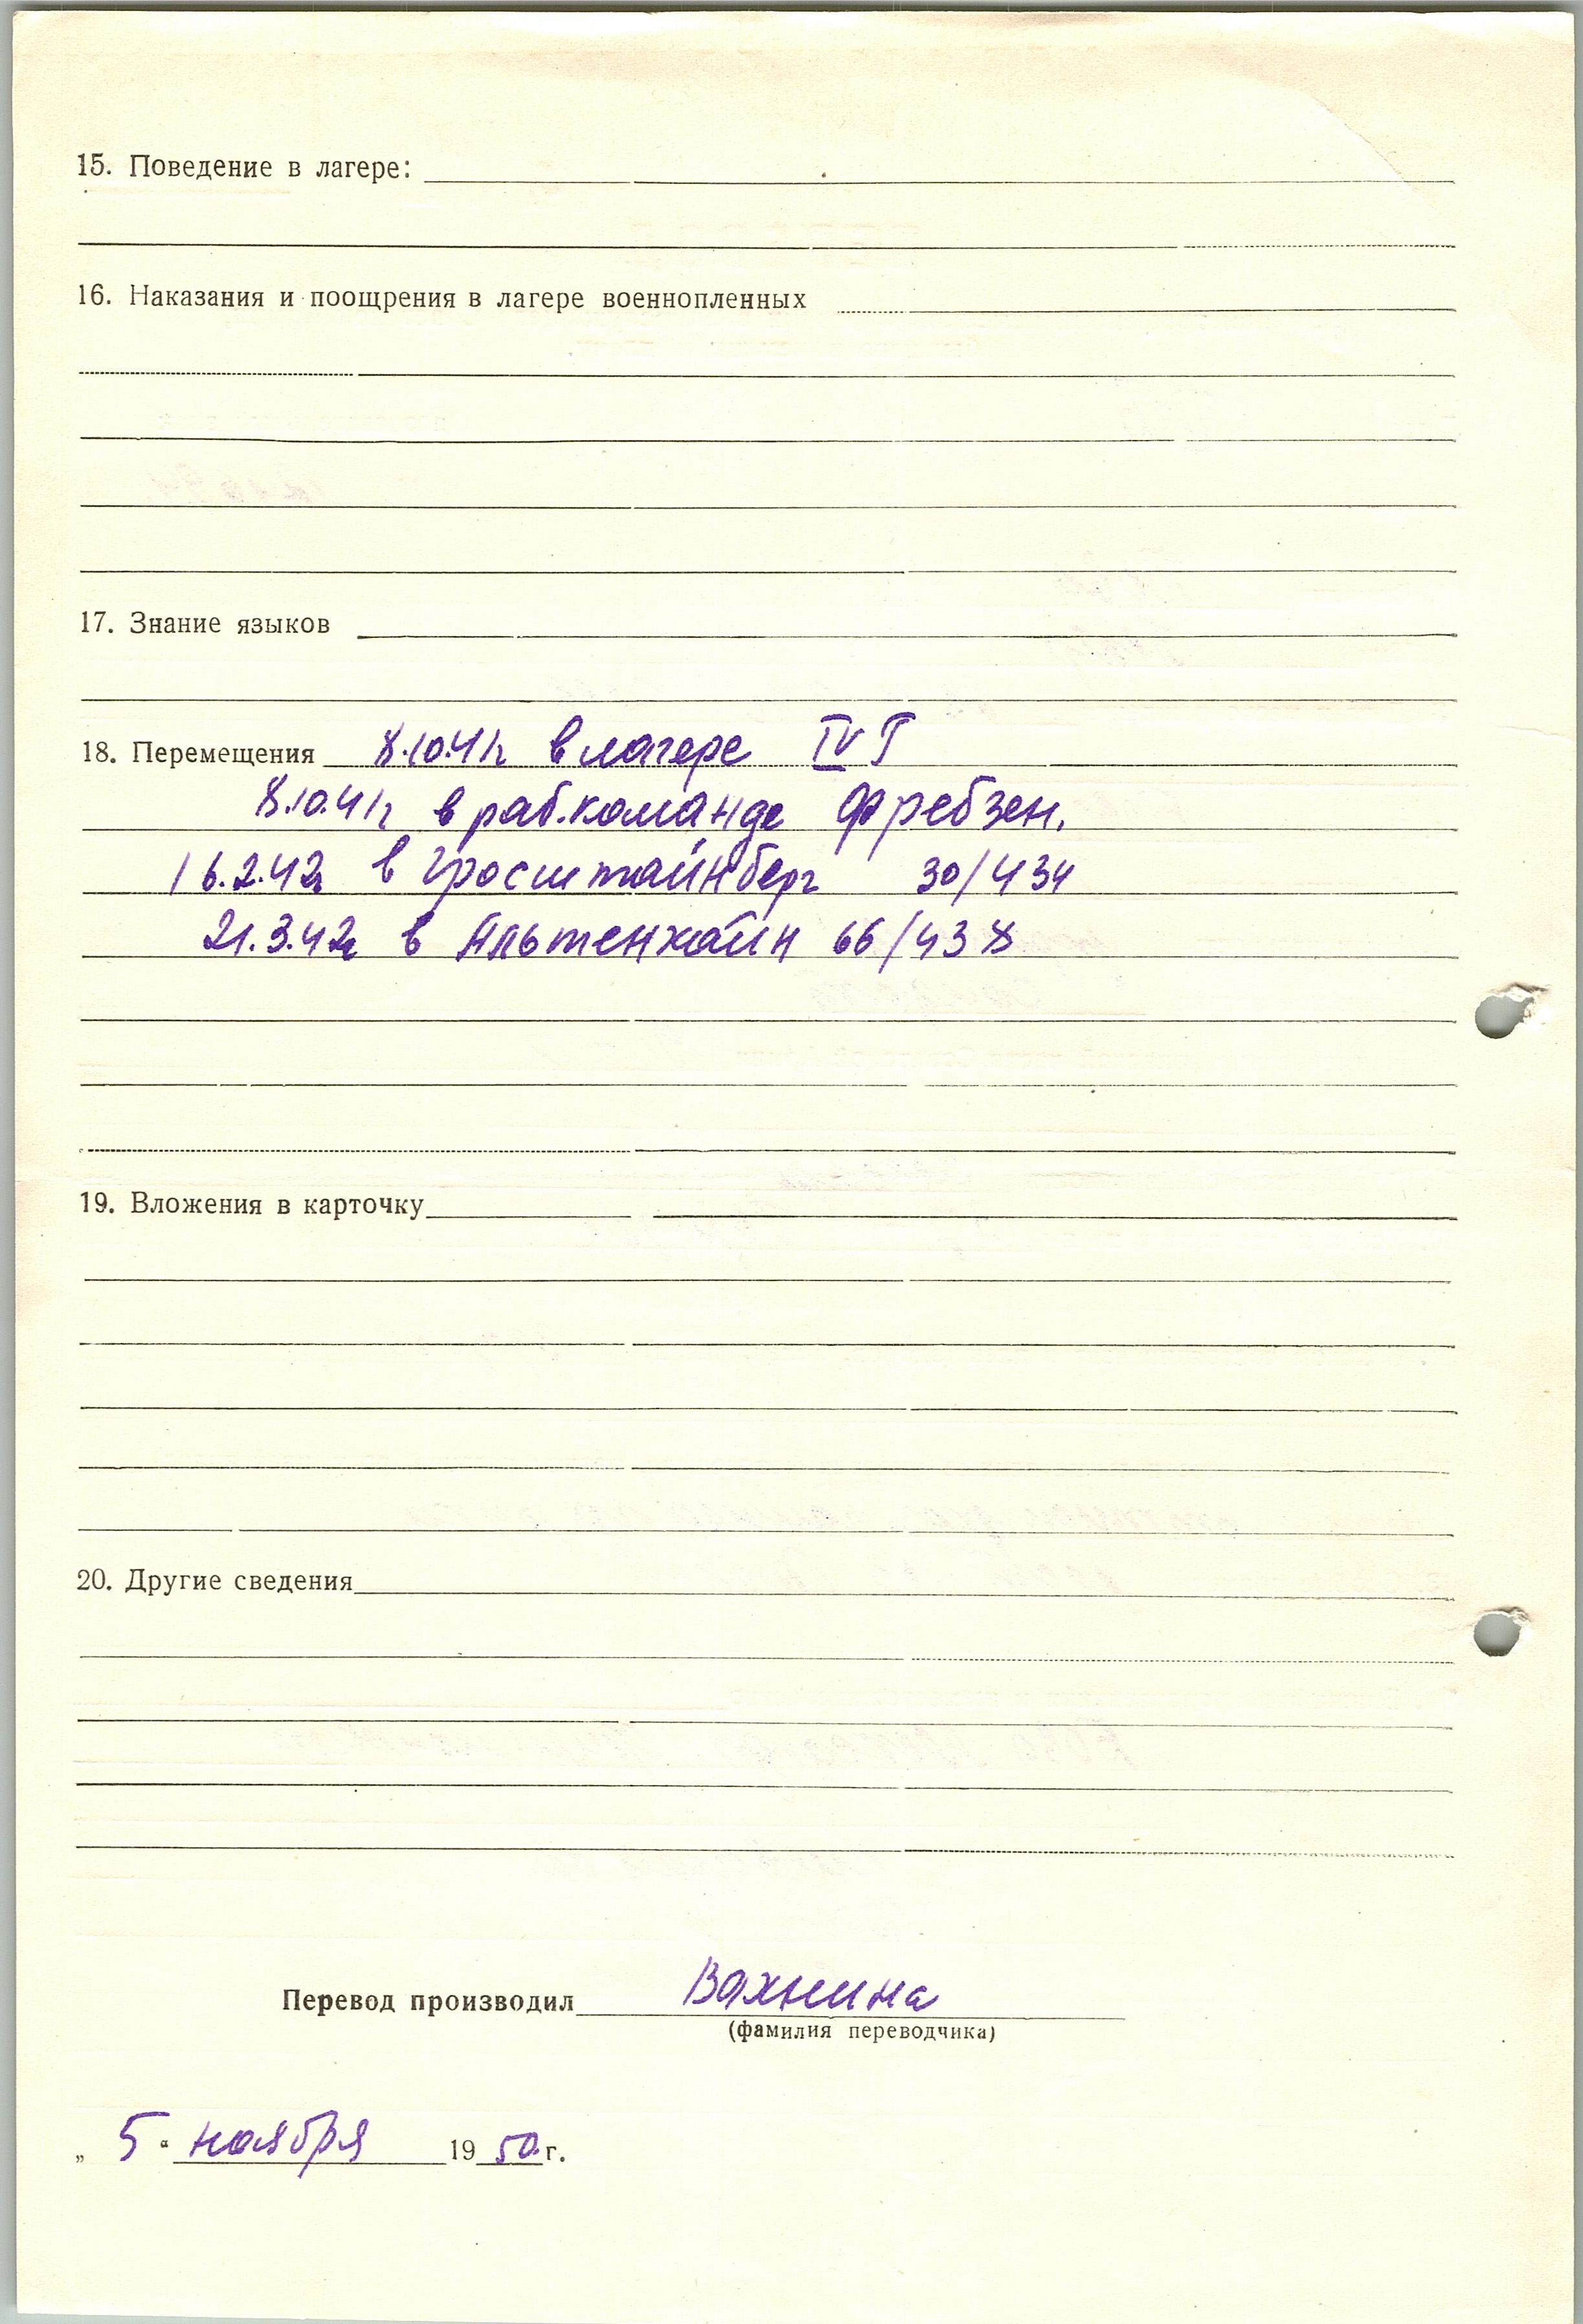 15. Поведение в лагере:
16. Наказания и поощрения в лагере военнопленных
17. Знание языков
18. Перемещения 8.10.41г в лагере IV Г
8.10.41г в раб.команде Фребзен.
16.2.42г в Гросштайнберг 30/434
21.3.42г в Альтенхайн 66/438
19. Вложения в карточку
20. Другие сведения
Перевод производил Вахнина
(фамилия переводчика)
„ 5 “ ноября 19 50 г.